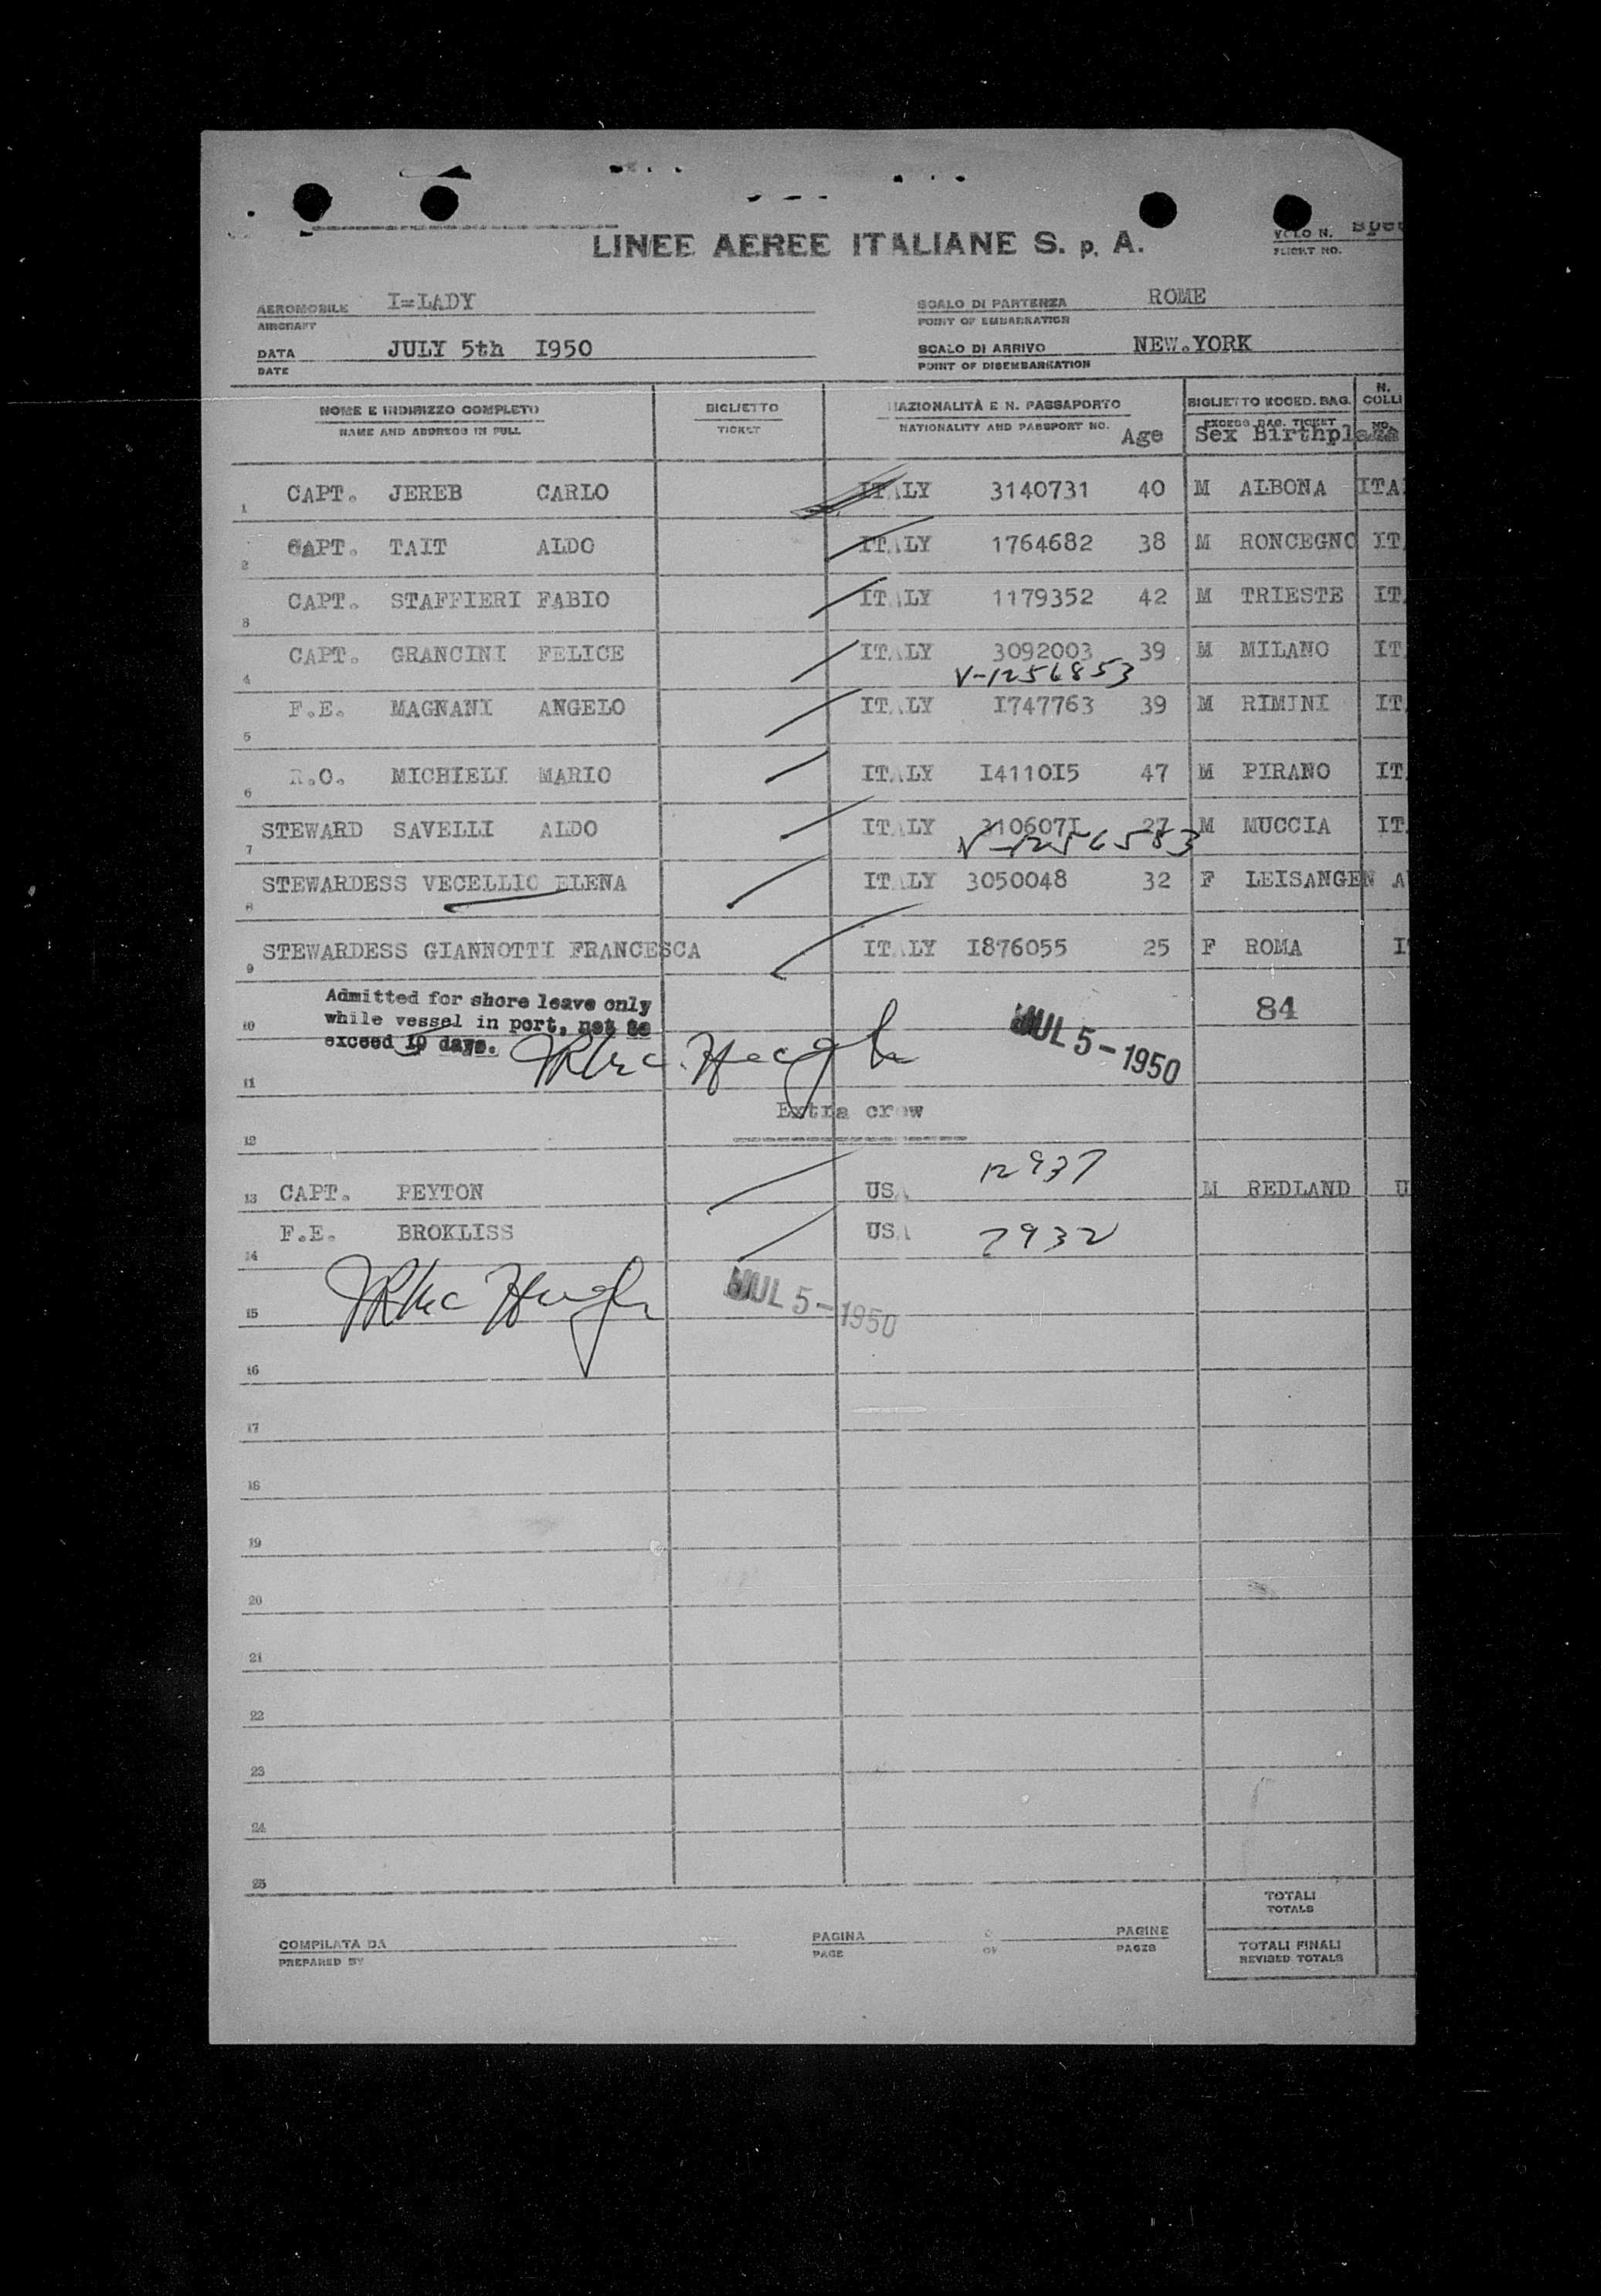 LINEE AEREE ITALIANE S. p. A.
VOLO N. Spe
FLIGHT NO.
AEROMOBILE I=LADY SCALO DI PARTENZA ROME
AIRCRAFT POINT OF EMBARKATION
DATA JULY 5th I950 SCALO DI ARRIVO NEW.YORK
DATE POINT OF DISEMBARKATION
NOME E INDIRIZZO COMPLETO BIGLIETTO NAZIONALITÀ E N. PASSAPORTO BIGLIETTO ECCED. BAG. N. COLLI
NAME AND ADDRESS IN FULL TICKET NATIONALITY AND PASSPORT NO. Age EXCESS BAG. TICKET NO.
Sex Birthplace
1 CAPT. JEREB CARLO ITALY 3140731 40 M ALBONA ITA
2 CAPT. TAIT ALDO ITALY 1764682 38 M RONCEGNO IT
3 CAPT. STAFFIERI FABIO ITALY 1179352 42 M TRIESTE IT
4 CAPT. GRANCINI FELICE ITALY 3092003 39 M MILANO IT
V-1256853
5 F.E. MAGNANI ANGELO ITALY I747763 39 M RIMINI IT
6 R.O. MICHIELI MARIO ITALY I4110I5 47 M PIRANO IT
7 STEWARD SAVELLI ALDO ITALY 310607I 27 M MUCCIA IT
V-1256583
8 STEWARDESS VECELLIO ELENA ITALY 3050048 32 F LEISANGEN A
9 STEWARDESS GIANNOTTI FRANCESCA ITALY I876055 25 F ROMA I
Admitted for shore leave only
10 while vessel in port, not to
exceed 10 days. JUL 5-1950 84
11
Extra crew
12
13 CAPT. PEYTON USA 12937 M REDLAND U
14 F.E. BROKLISS USA 7932
15 JUL 5-1950
16
17
18
19
20
21
22
23
24
25
TOTALI
TOTALS
COMPILATA DA PAGINA PAGINE
PREPARED BY PAGE OF PAGES
TOTALI FINALI
REVISED TOTALS